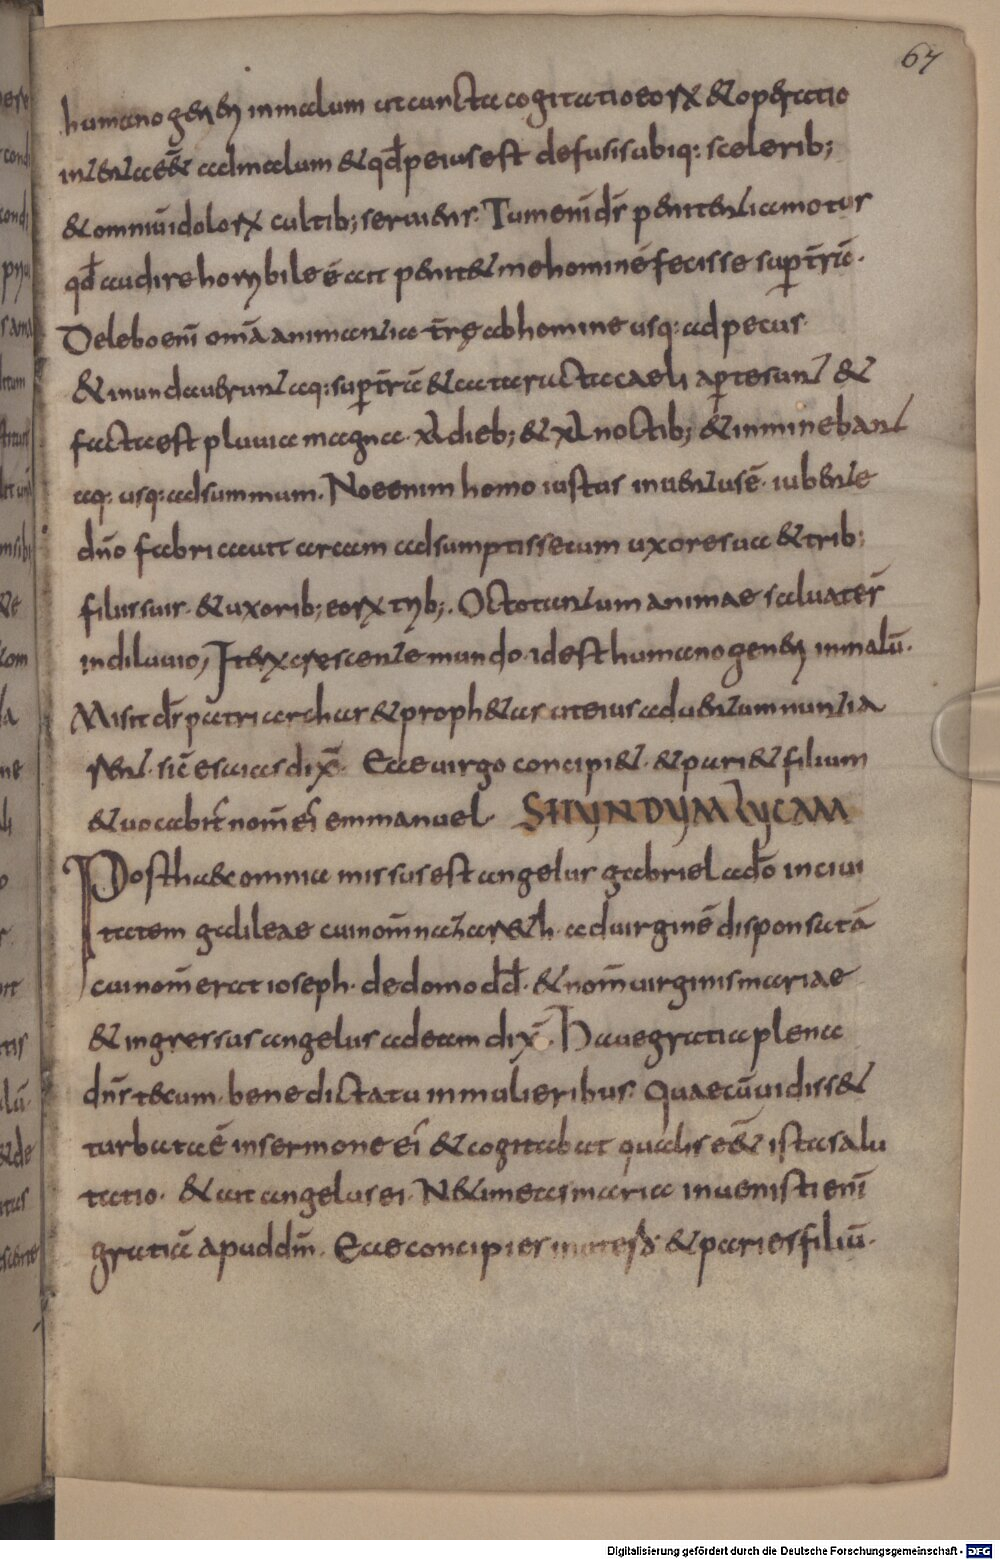 67
humano genere in malum ut cuncta cogitatio eoꝝ & operatio
intenta eēt ad malum & qđ peius est defusis ubiq: scelerib;
& omniū idoloꝝ cultib; seruiens. Tum enī dr̄ penitentia motus
qđ audire horribile ē ait penitet me hominē fecisse super tr̄ā.
Delebo enī om̄a animantia tr̄ę ab homine usq: ad pecus
& inundauerunt aq: super tr̄ā & cataracta caeli apertesunt &
facta est pluuia magna. xl dieb; & xl noctib; & inminebant
aq: usq: ad summum. Noe enim homo iustus inuentus ē. iubente
dn̄o fabricauit arcam adsumptis secum uxore sua & trib;
filiis suis. & uxorib; eoꝝ trib;. Octo tantum animae saluate s̄
in diluuio, Iteꝝ crescente mundo. id est humano genere in malū.
Misit dr̄ patriarchas & prophetas ut eius aduentum nuntia
rent. sic̄ esaias dix̄. Ecce uirgo concipiet. & pariet filium
& uocabit̄ nom̄ eī emmanuel. SECUNDUM LUCAM
Post haec omnia missus est angelus gabriel a dō in ciui
tatem galileae cui nom̄ nazareth. ad uirginē disponsatā
cui nom̄ erat ioseph. de domo dd̄. & nom̄ uirginis mariae
& ingressus angelus ad eam dix̄. Haue gratia plena
dn̄s tecum. benedicta tu in mulieribus. Quae cū uidisset
turbata ē in sermone eī & cogitabat qualis eēt ista salu
tatio. & ait angelus ei. Ne timeas maria inuenisti enī
gratiā apud dm̄. Ecce concipies in utero & paries filiū.
Digitalisierung gefördert durch die Deutsche Forschungsgemeinschaft - DFG